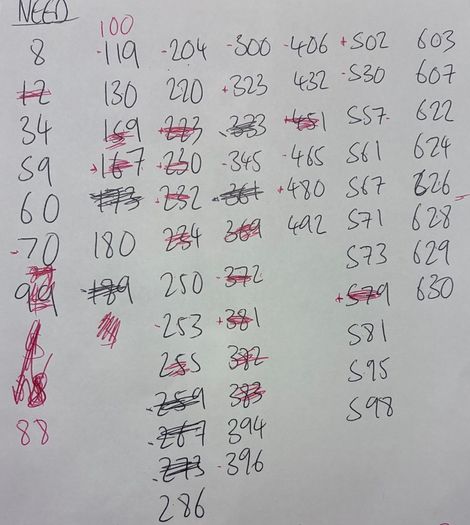 NEED
8
12
34
59
60
-70
88
100
-119
130
169
+167
173
180
-189
-204
220
+223
+230
-232
234
250
-253
255
-259
-267
-273
286
-300
+323
333
-345
361
369
-372
+381
382
383
394
-396
-406
432
+451
-465
+480
492
+502
-530
557-
561
567
571
573
+579
581
595
598
603
607
622
624
626
628
629
630